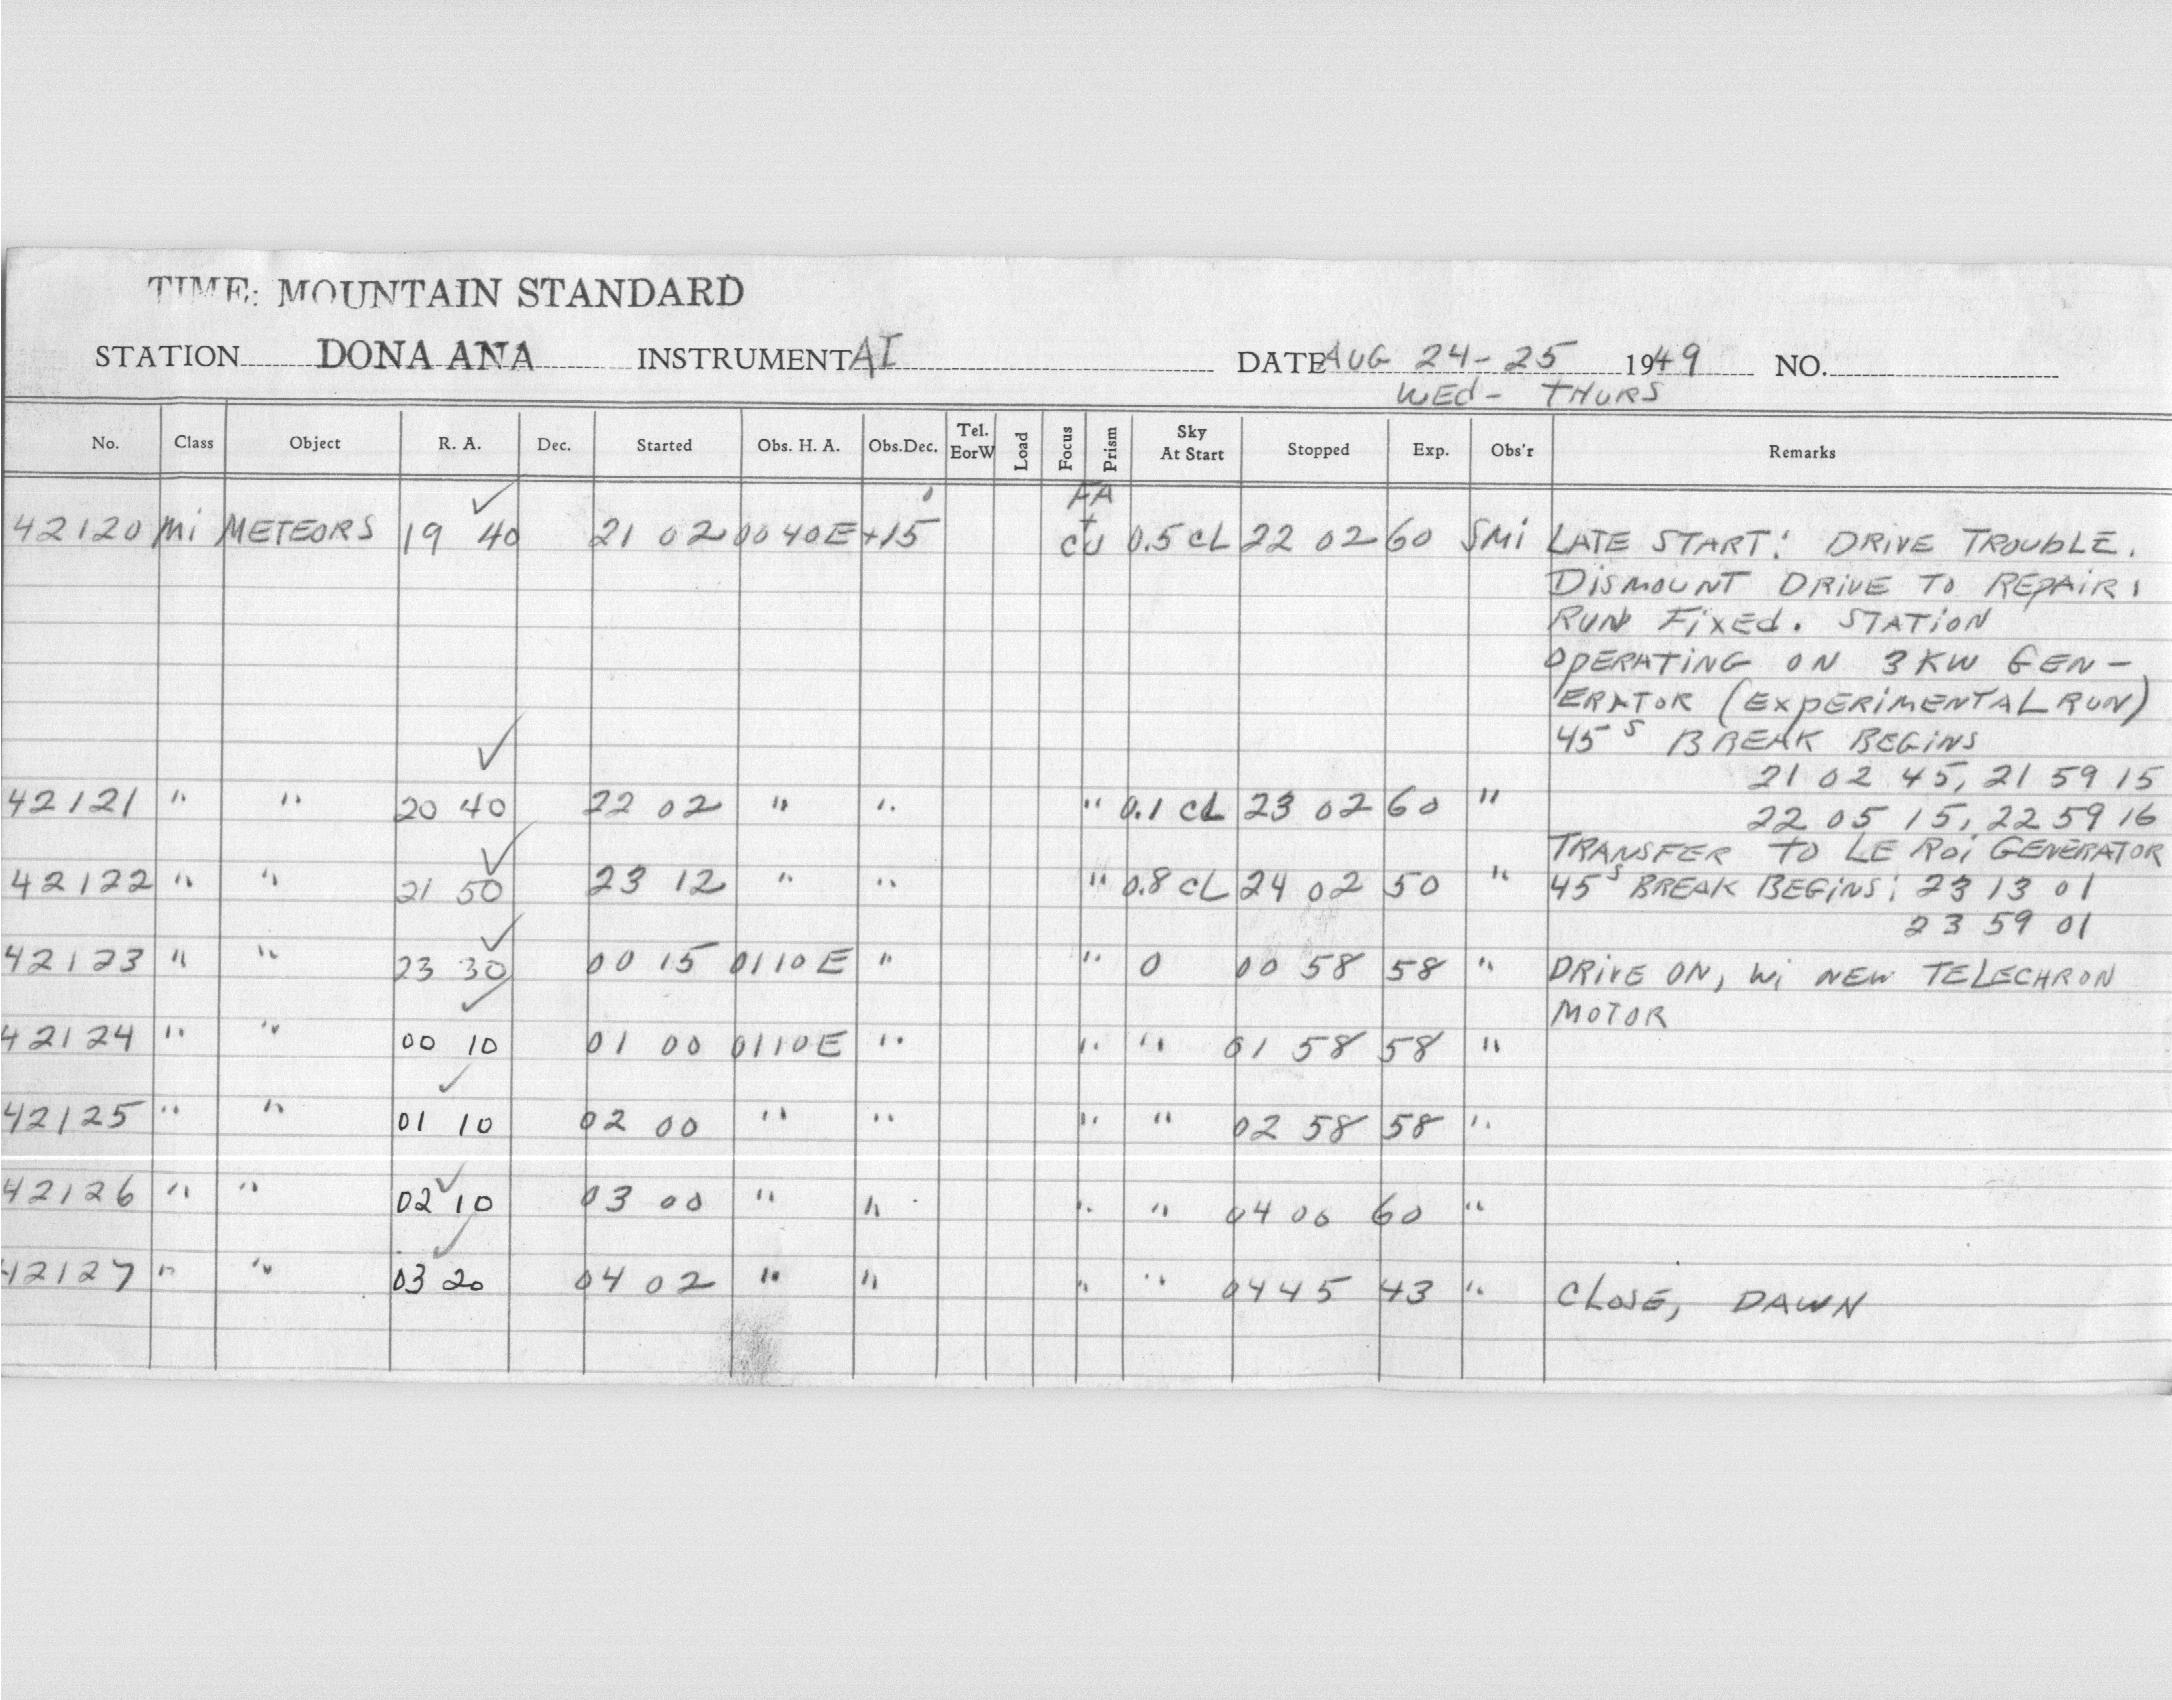 TIME: MOUNTAIN STANDARD
STATION DONA ANA INSTRUMENT AI DATE AUG 24-25 1949 NO.
WEd- THURS
No. Class Object R. A. Dec. Started Obs. H. A. Obs.Dec. Tel. EorW Load Focus Prism Sky At Start Stopped Exp. Obs'r Remarks
FA
+
42120 Mi METEORS 19 40 21 02 00 40E +15 CU 0.5 CL 22 02 60 SMi LATE START: DRIVE TROUBLE.
DISMOUNT DRIVE TO REPAIR.
RUN FIXEd. STATION
OPERATING ON 3 KW GEN-
ERATOR (EXPERIMENTAL RUN)
45 S BREAK BEGINS
21 02 45, 21 59 15
42121 " " 20 40 22 02 " " " 0.1 CL 23 02 60 " 22 05 15, 22 59 16
TRANSFER TO LE ROI GENERATOR
42122 " " 21 50 23 12 " " " 0.8 CL 24 02 50 " 45 S BREAK BEGINS: 23 13 01
23 59 01
42123 " " 23 30 00 15 01 10 E " " 0 00 58 58 " DRIVE ON, Wi NEW TELECHRON
MOTOR
42124 " " 00 10 01 00 01 10 E " " " 01 58 58 "
42125 " " 01 10 02 00 " " " " 02 58 58 "
42126 " " 02 10 03 00 " " " " 04 00 60 "
42127 " " 03 20 04 02 " " " " 04 45 43 " CLOSE, DAWN